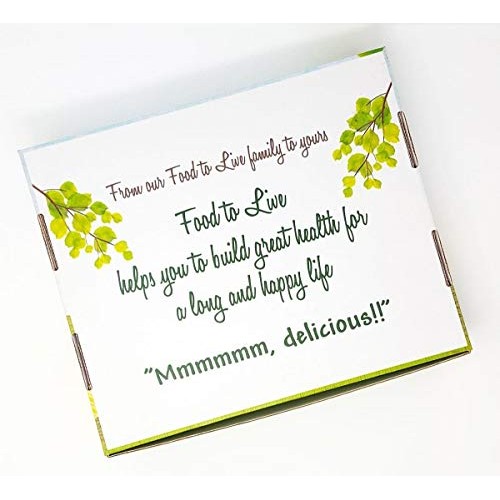 From our Food to Live family to yours
Food to Live
helps you to build great health for
a long and happy life
"Mmmmmm, delicious!!"